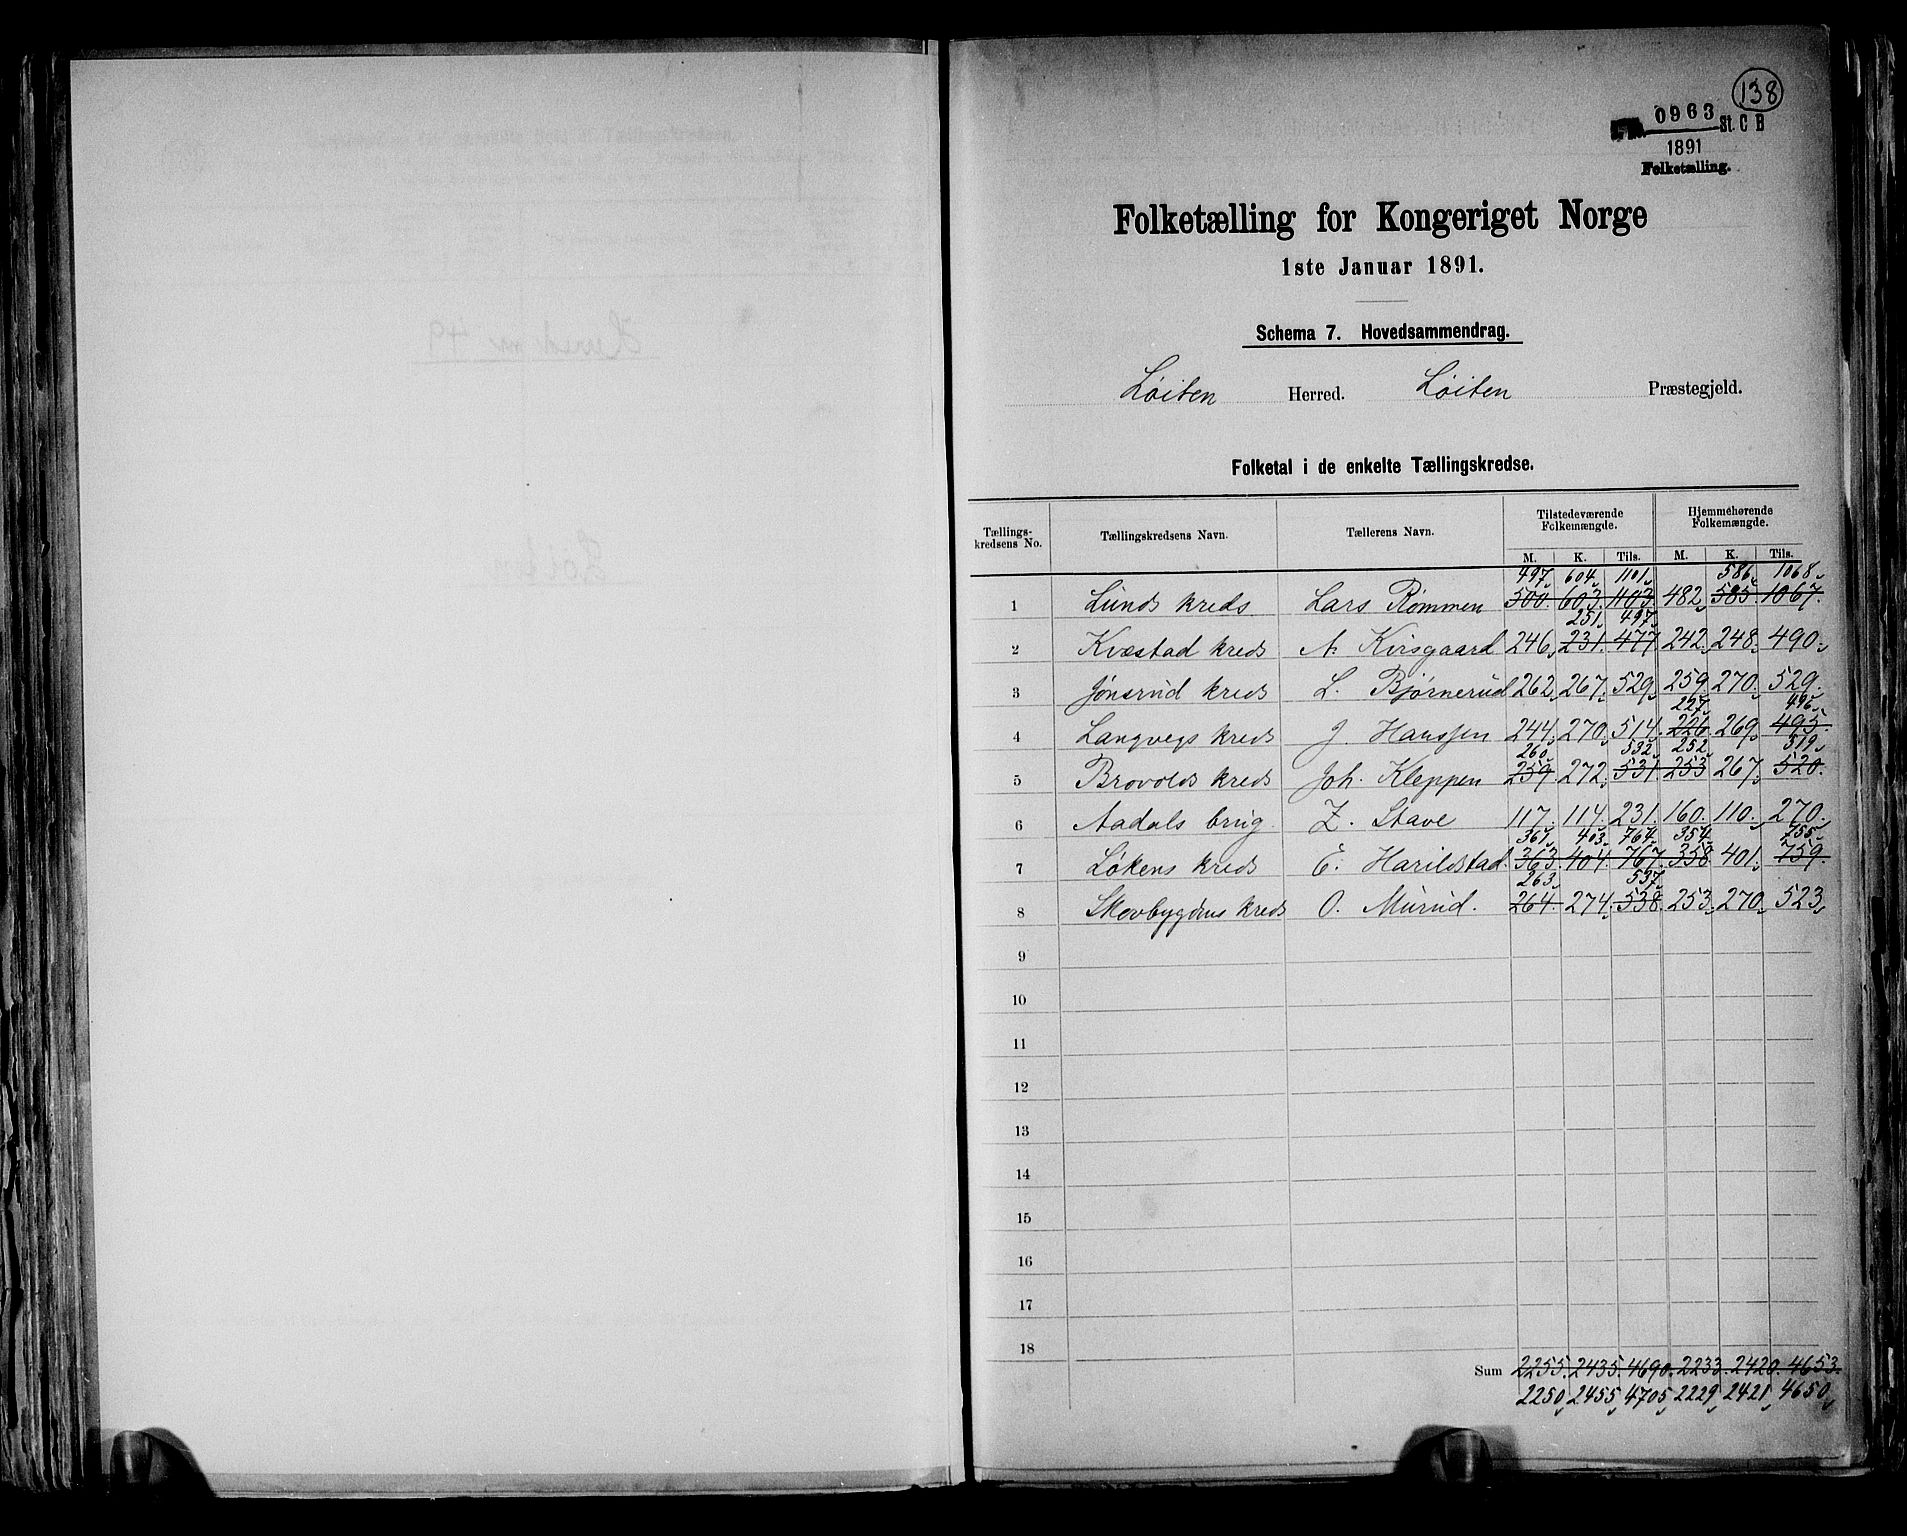 138
0963
St. C B
1891
Folketælling.
Folketælling for Kongeriget Norge
1ste Januar 1891.
Schema 7. Hovedsammendrag.
Løiten Herred. Løiten Præstegjeld.
Folketal i de enkelte Tællingskredse.
Tællingskredsens No. Tællingskredsens Navn. Tællerens Navn. Tilstedeværende Folkemængde. Hjemmehørende Folkemængde.
M. K. Tils. M. K. Tils.
497 604 1101 586 1068
1 Lunds kreds Lars Rømmen 500 603 1103 482 585 1067
251 497
2 Kvæstad kreds A. Kirsgaard 246 231 477 242 248 490
3 Jønsrud kreds L. Bjørnerud 262 267 529 259 270 529
227 496
4 Langvegs kreds J. Hanssen 244 270 514 226 269 495
260 532 252 519
5 Brovolds kreds Joh. Kleppen 259 272 531 253 267 520
6 Aadals brug Z. Stave 117 114 231 160 110 270
361 403 764 354 755
7 Løkens kreds E. Harildstad 363 404 767 358 401 759
263 537
8 Skovbygdens kreds O. Murud. 264 274 538 253 270 523
9
10
11
12
13
14
15
16
17
18
Sum 2255 2435 4690 2233 2420 4653
2250 2455 4705 2229 2421 4650